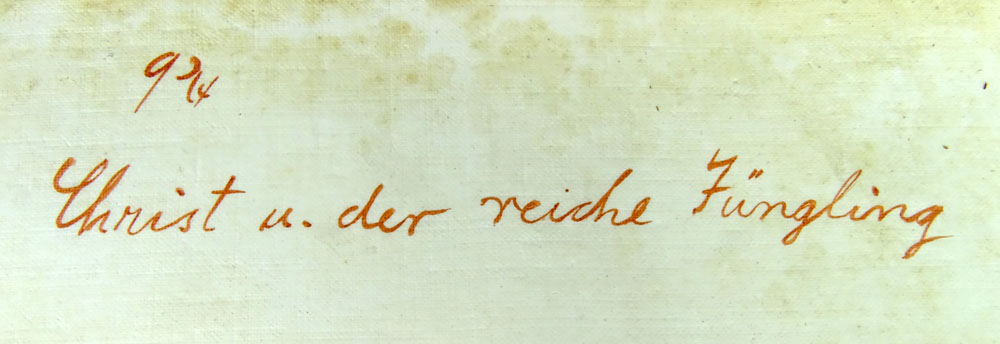 9 3/4
Christ u. der reiche Jüngling